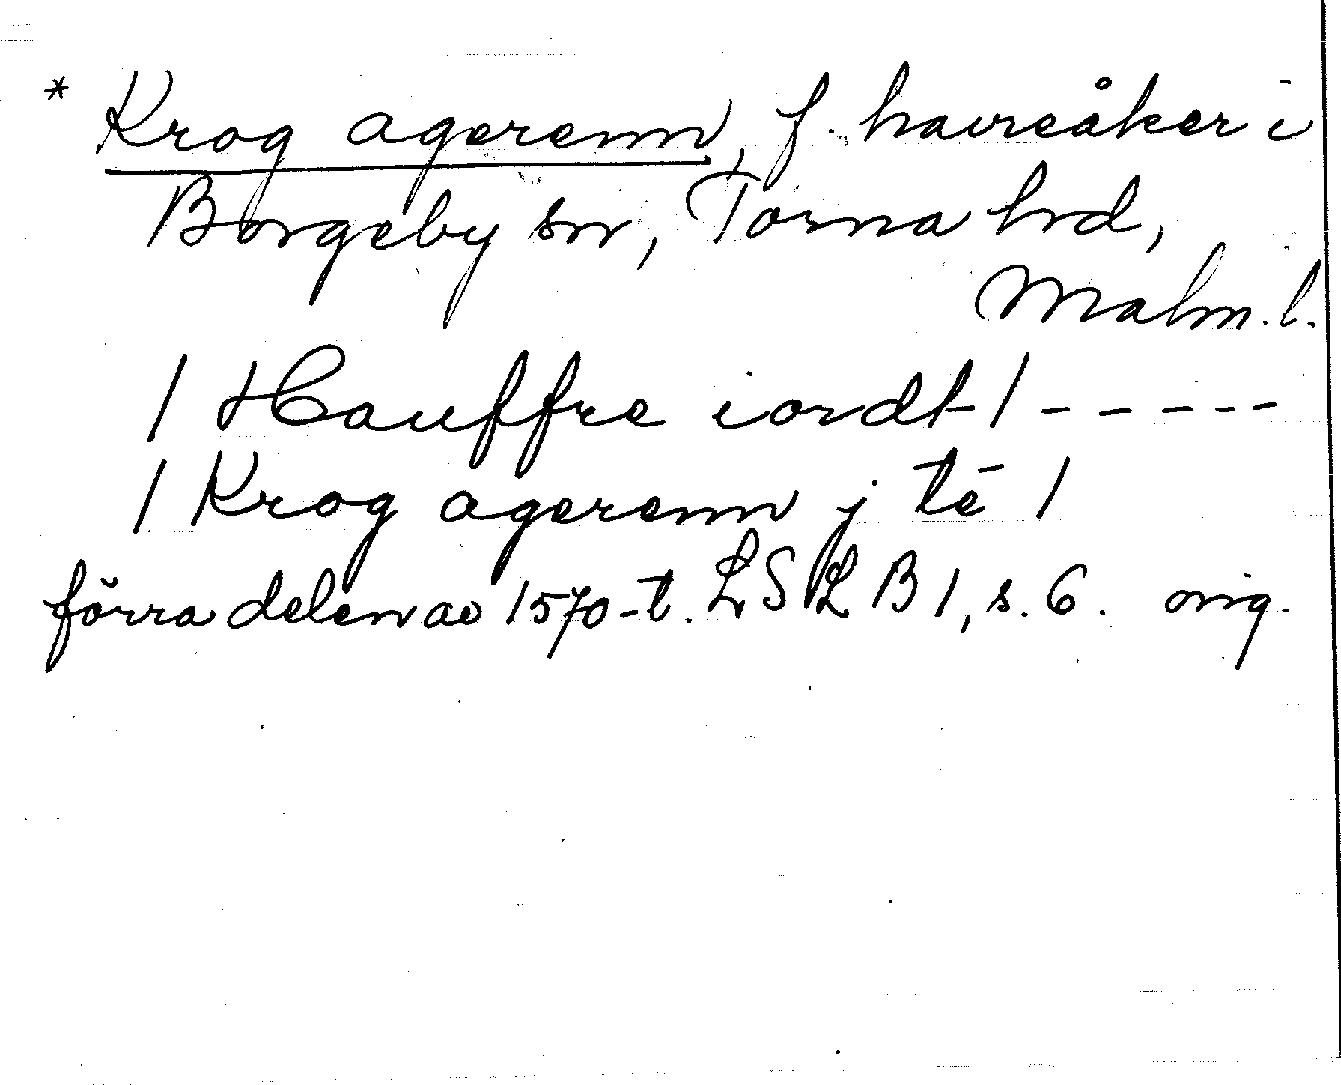 * Krog agerenn, f. havreåker i
Borgeby sn, Torna hrd,
Malm. l.
/ Hauffre iordt / - - - - -
/ Krog agerenn j tē /
förra delen av 1570-t. LSLB 1, s. 6. orig.